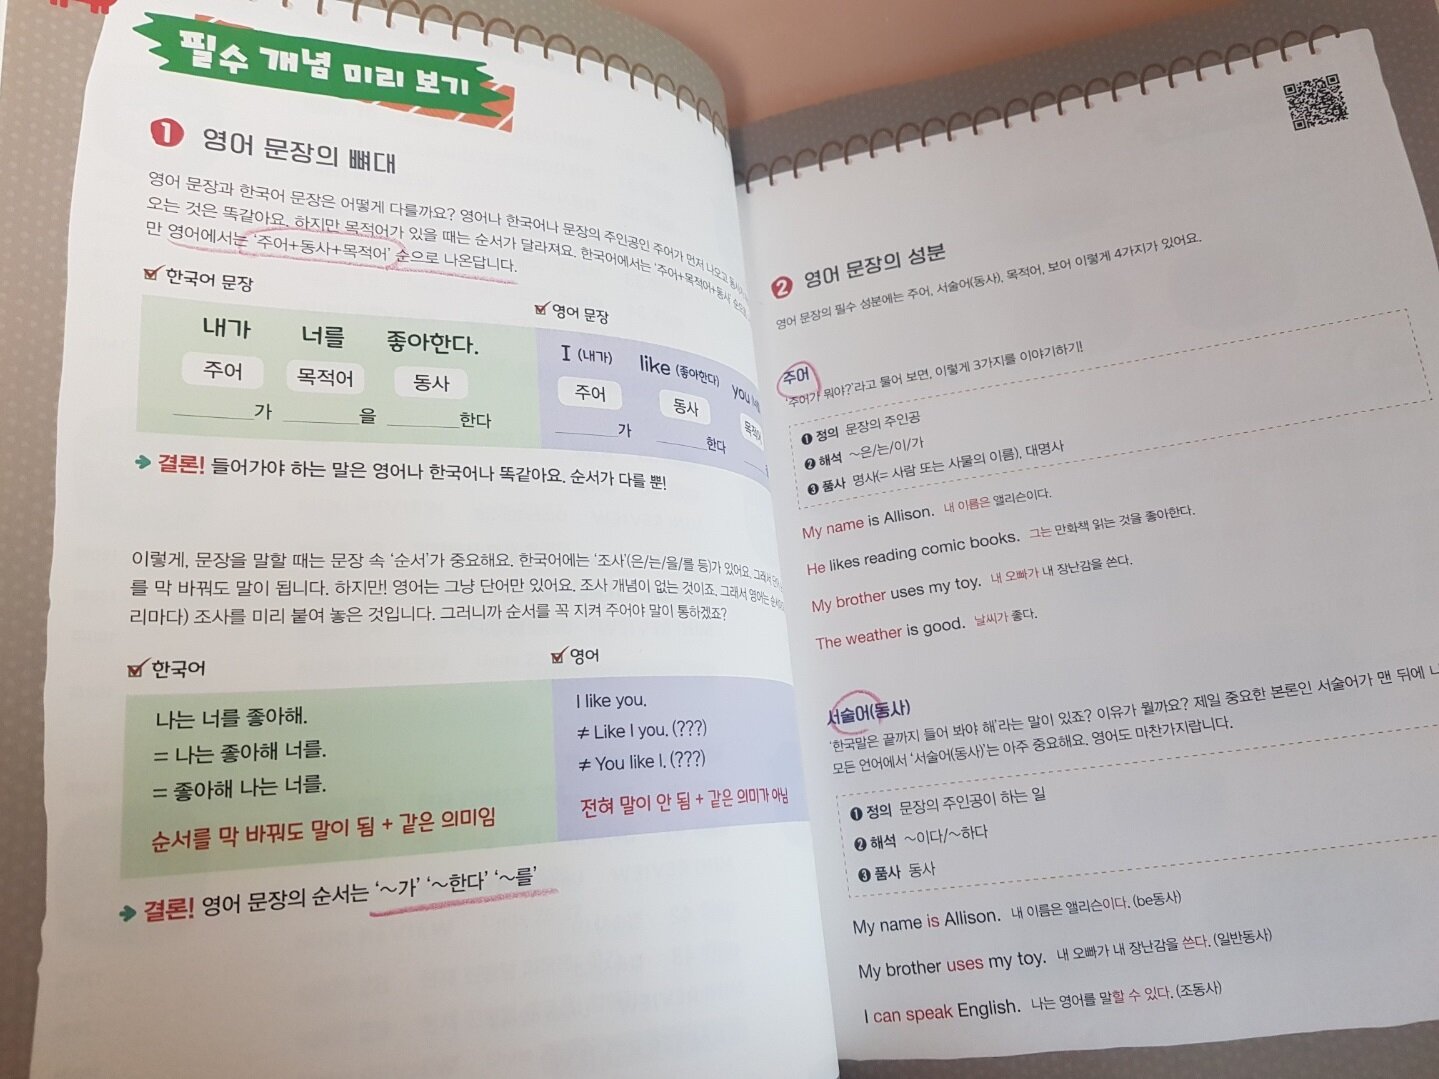 필수 개념 미리 보기
1 영어 문장의 뼈대
영어 문장과 한국어 문장은 어떻게 다를까요? 영어나 한국어나 문장의 주인공인 주어가 먼저 나오고
오는 것은 똑같아요. 하지만 목적어가 있을 때는 순서가 달라져요. 한국어에서는 '주어+목적어+동사'
만 영어에서는 '주어+동사+목적어' 순으로 나온답니다.
한국어 문장
내가 너를 좋아한다.
주어 목적어 동사
가 을 한다
영어 문장
I (내가) like (좋아한다) you
주어 동사
가 한다
결론! 들어가야 하는 말은 영어나 한국어나 똑같아요. 순서가 다를 뿐!
이렇게, 문장을 말할 때는 문장 속 '순서'가 중요해요. 한국어에는 '조사'(은/는/을/를 등)가 있어요. 그래서
를 막 바꿔도 말이 됩니다. 하지만! 영어는 그냥 단어만 있어요. 조사 개념이 없는 것이죠. 그래서 영어는
리마다) 조사를 미리 붙여 놓은 것입니다. 그러니까 순서를 꼭 지켜 주어야 말이 통하겠죠?
한국어
나는 너를 좋아해.
= 나는 좋아해 너를.
= 좋아해 나는 너를.
순서를 막 바꿔도 말이 됨 + 같은 의미임
영어
I like you.
≠ Like I you. (???)
≠ You like I. (???)
전혀 말이 안 됨 + 같은 의미가 아님
결론! 영어 문장의 순서는 '~가' '~한다' '~를'
2 영어 문장의 성분
영어 문장의 필수 성분에는 주어, 서술어(동사), 목적어, 보어 이렇게 4가지가 있어요.
주어
'주어가 뭐야?'라고 물어 보면, 이렇게 3가지를 이야기하기!
1 정의 문장의 주인공
2 해석 ~은/는/이/가
3 품사 명사(= 사람 또는 사물의 이름), 대명사
My name is Allison. 내 이름은 앨리슨이다.
He likes reading comic books. 그는 만화책 읽는 것을 좋아한다.
My brother uses my toy. 내 오빠가 내 장난감을 쓴다.
The weather is good. 날씨가 좋다.
서술어(동사)
'한국말은 끝까지 들어 봐야 해'라는 말이 있죠? 이유가 뭘까요? 제일 중요한 본론인 서술어가 맨 뒤에
모든 언어에서 '서술어(동사)'는 아주 중요해요. 영어도 마찬가지랍니다.
1 정의 문장의 주인공이 하는 일
2 해석 ~이다/~하다
3 품사 동사
My name is Allison. 내 이름은 앨리슨이다. (be동사)
My brother uses my toy. 내 오빠가 내 장난감을 쓴다. (일반동사)
I can speak English. 나는 영어를 말할 수 있다. (조동사)